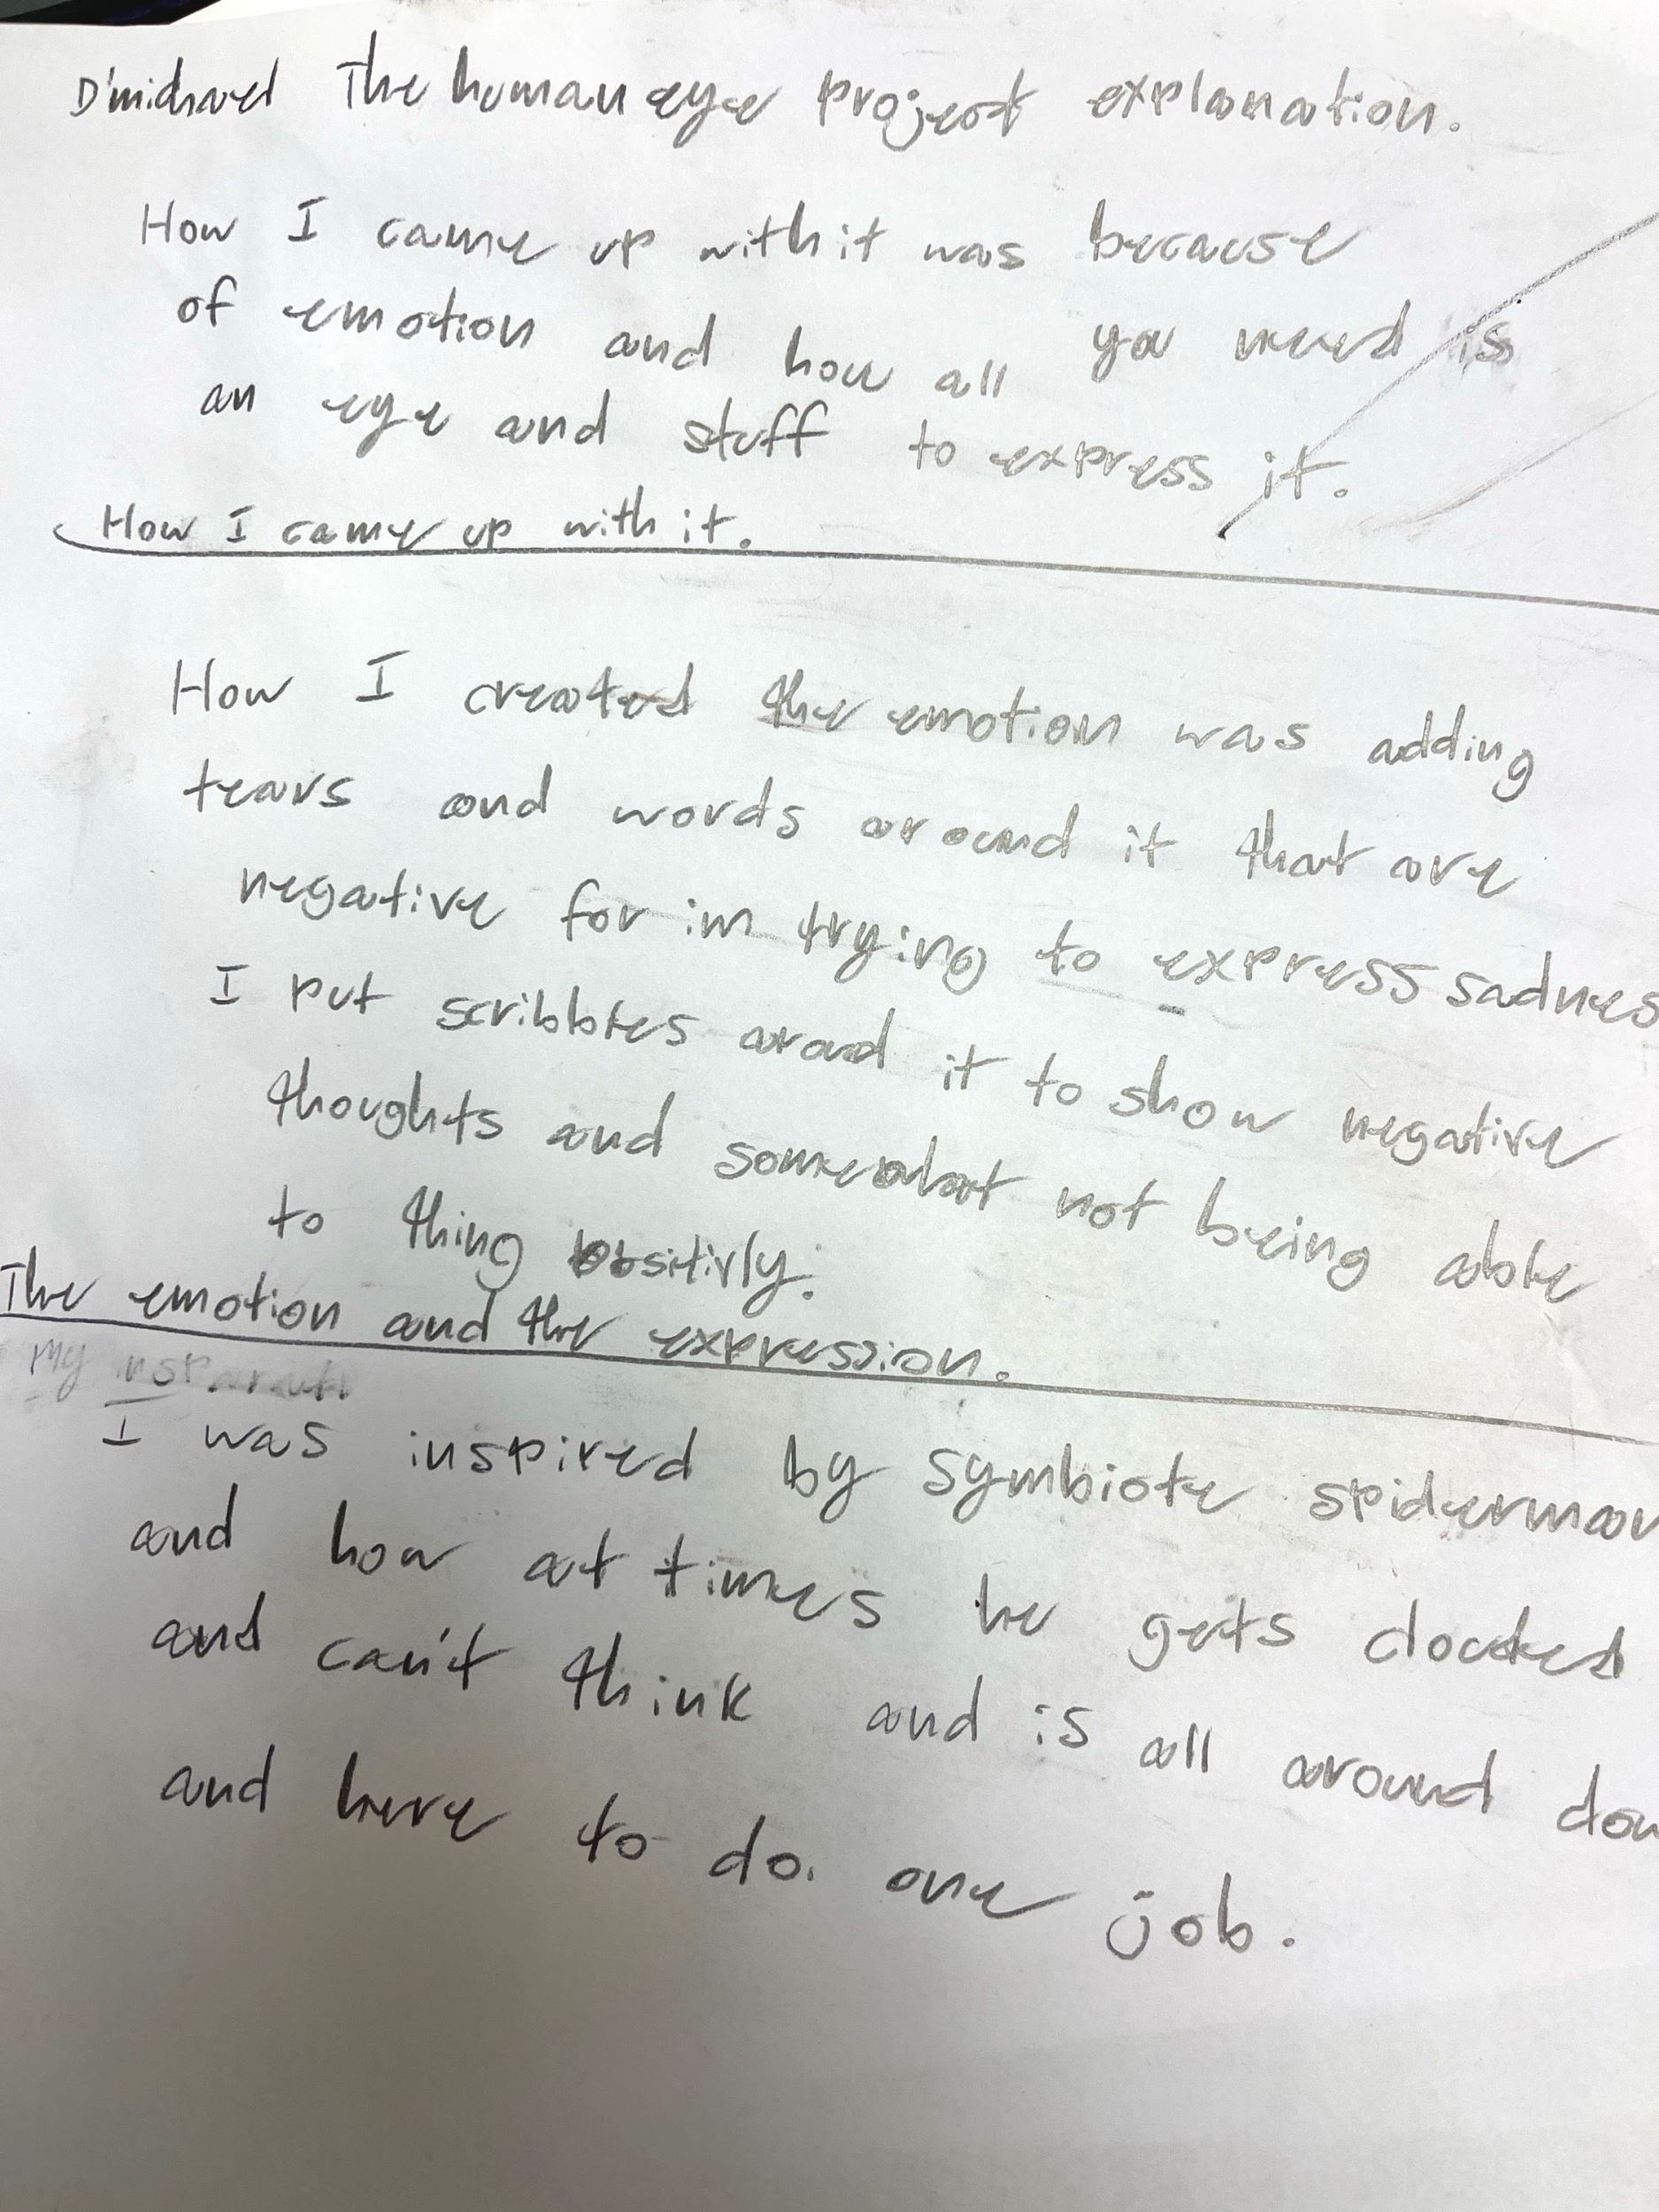 D'michael The human eye project explanation.
How I came up with it was because
of emotion and how all you need is
an eye and stuff to express it.
How I came up with it.
How I created the emotion was adding
tears and words around it that are
negative for im trying to express sadnes
I put scribbles aroud it to show negative
thoughts and somewhat not being able
to thing positivly.
The emotion and the expression.
My
I was inspired by symbiote spiderman
and how at times he gets clouded
and can't think and is all around
and here to do. one job.